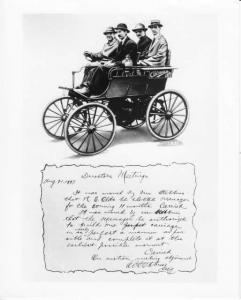 Directors Meeting
Aug 21, 1897
It was moved by Mr Stebbins
that R E Olds be elected manager
for the coming 11 months Carried
It was moved by Mr Stebbins
that the manager be authorized
to build one carriage
in as near perfect a manner as pos-
sible and complete it at the
earliest possible moment
Carried
On motion meeting adjourned